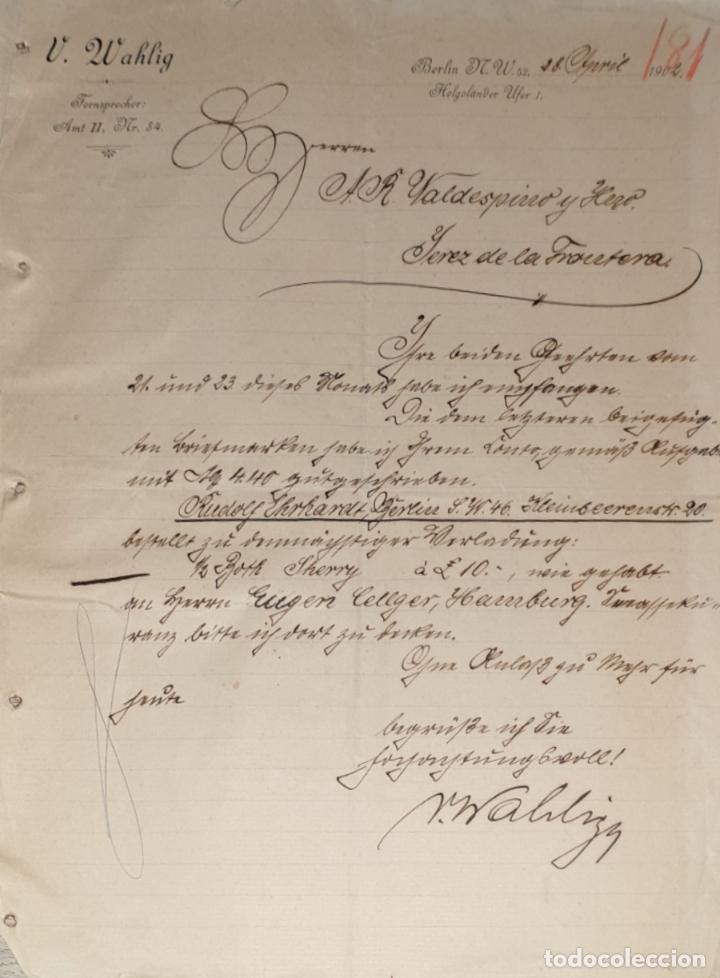 V. Wahlig
Fernsprecher:
Amt II, Nr. 34.
Berlin N.W. 52, 28. April 1902.
Helgoländer Ufer 1.
181
Herren
A. R. Valdespino y Hno.
Jerez de la Frontera.
Ihre beiden Geehrten vom
21. und 23. dieses Monats habe ich empfangen.
Die dem letzteren beigefüg-
ten Briefmarken habe ich Ihrem Conto, gemäß Aufgabe
mit M 4.40 gutgeschrieben.
Rudolf Ehrhardt, Berlin S.W. 46. Kleinbeerenstr. 20.
bestellt zu demnächstiger Verladung:
1/2 Both Sherry à £ 10.-, wie gehabt
an Herrn Eugen Cellger, Hamburg. Seeasseku-
ranz bitte ich dort zu decken.
Ohne Anlaß zu Mehr für
heute
begrüße ich Sie
hochachtungsvoll!
V. Wahlig
todocoleccion